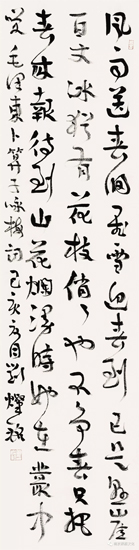 風雨送春歸飛雪迎春到已是懸崖
百丈冰猶有花枝俏々也不争春只把
春来報待到山花爛漫時她在叢中
笑 毛澤東卜算子咏梅詞 己亥夏月劉燦銘